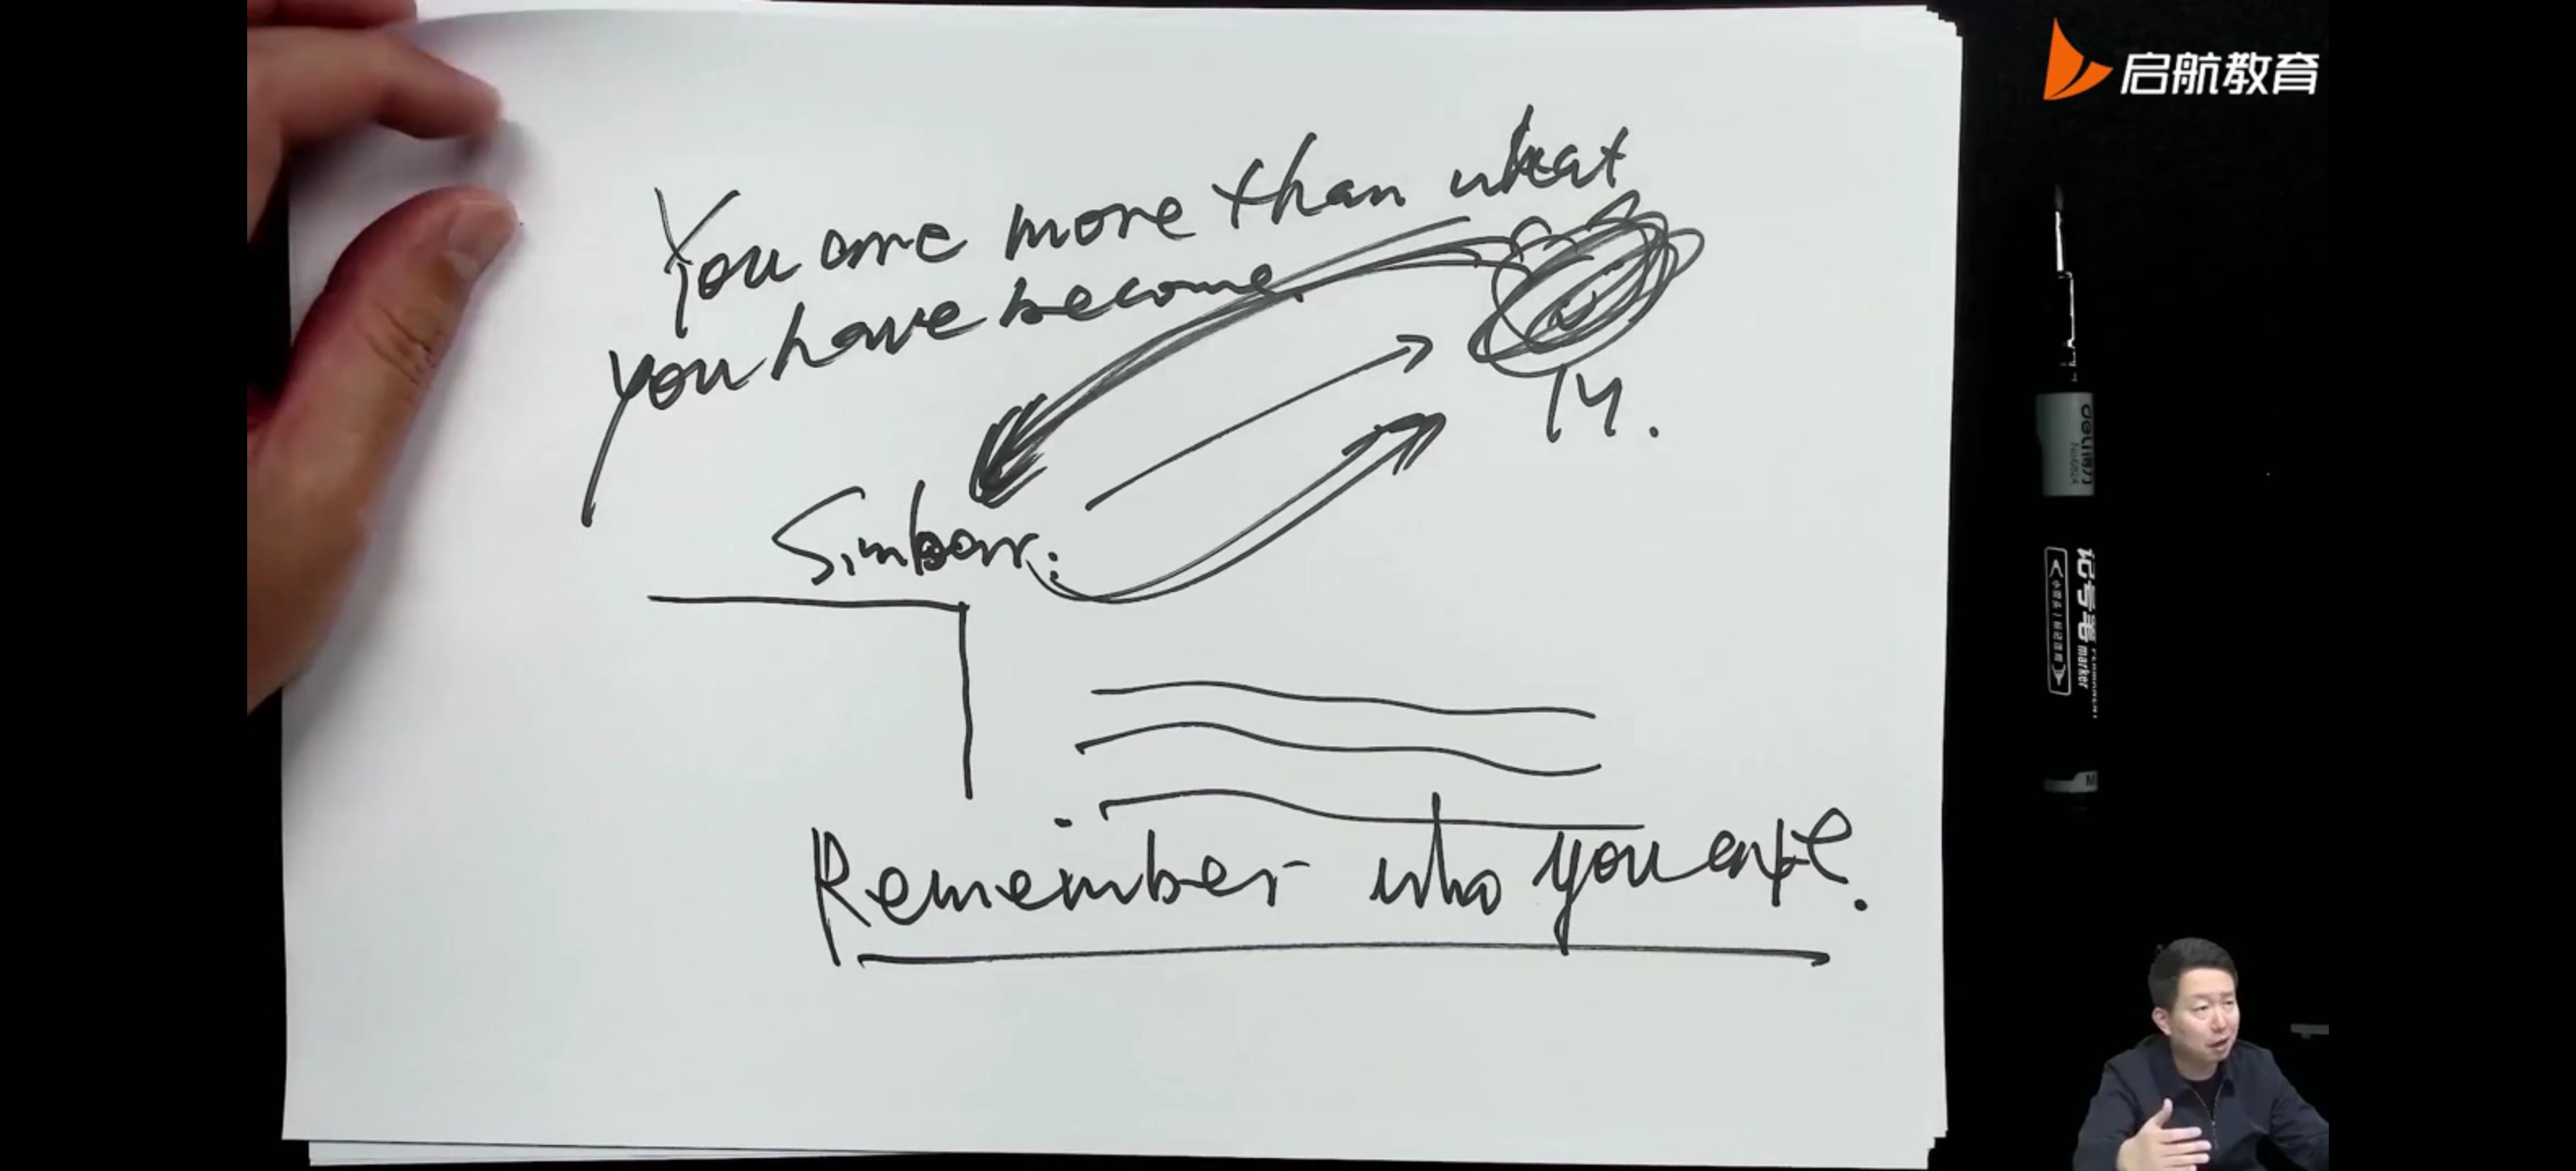 启航教育
You are more than what
you have become.
14.
Simbarr:
Remember who you are.
deli
记号笔
marker